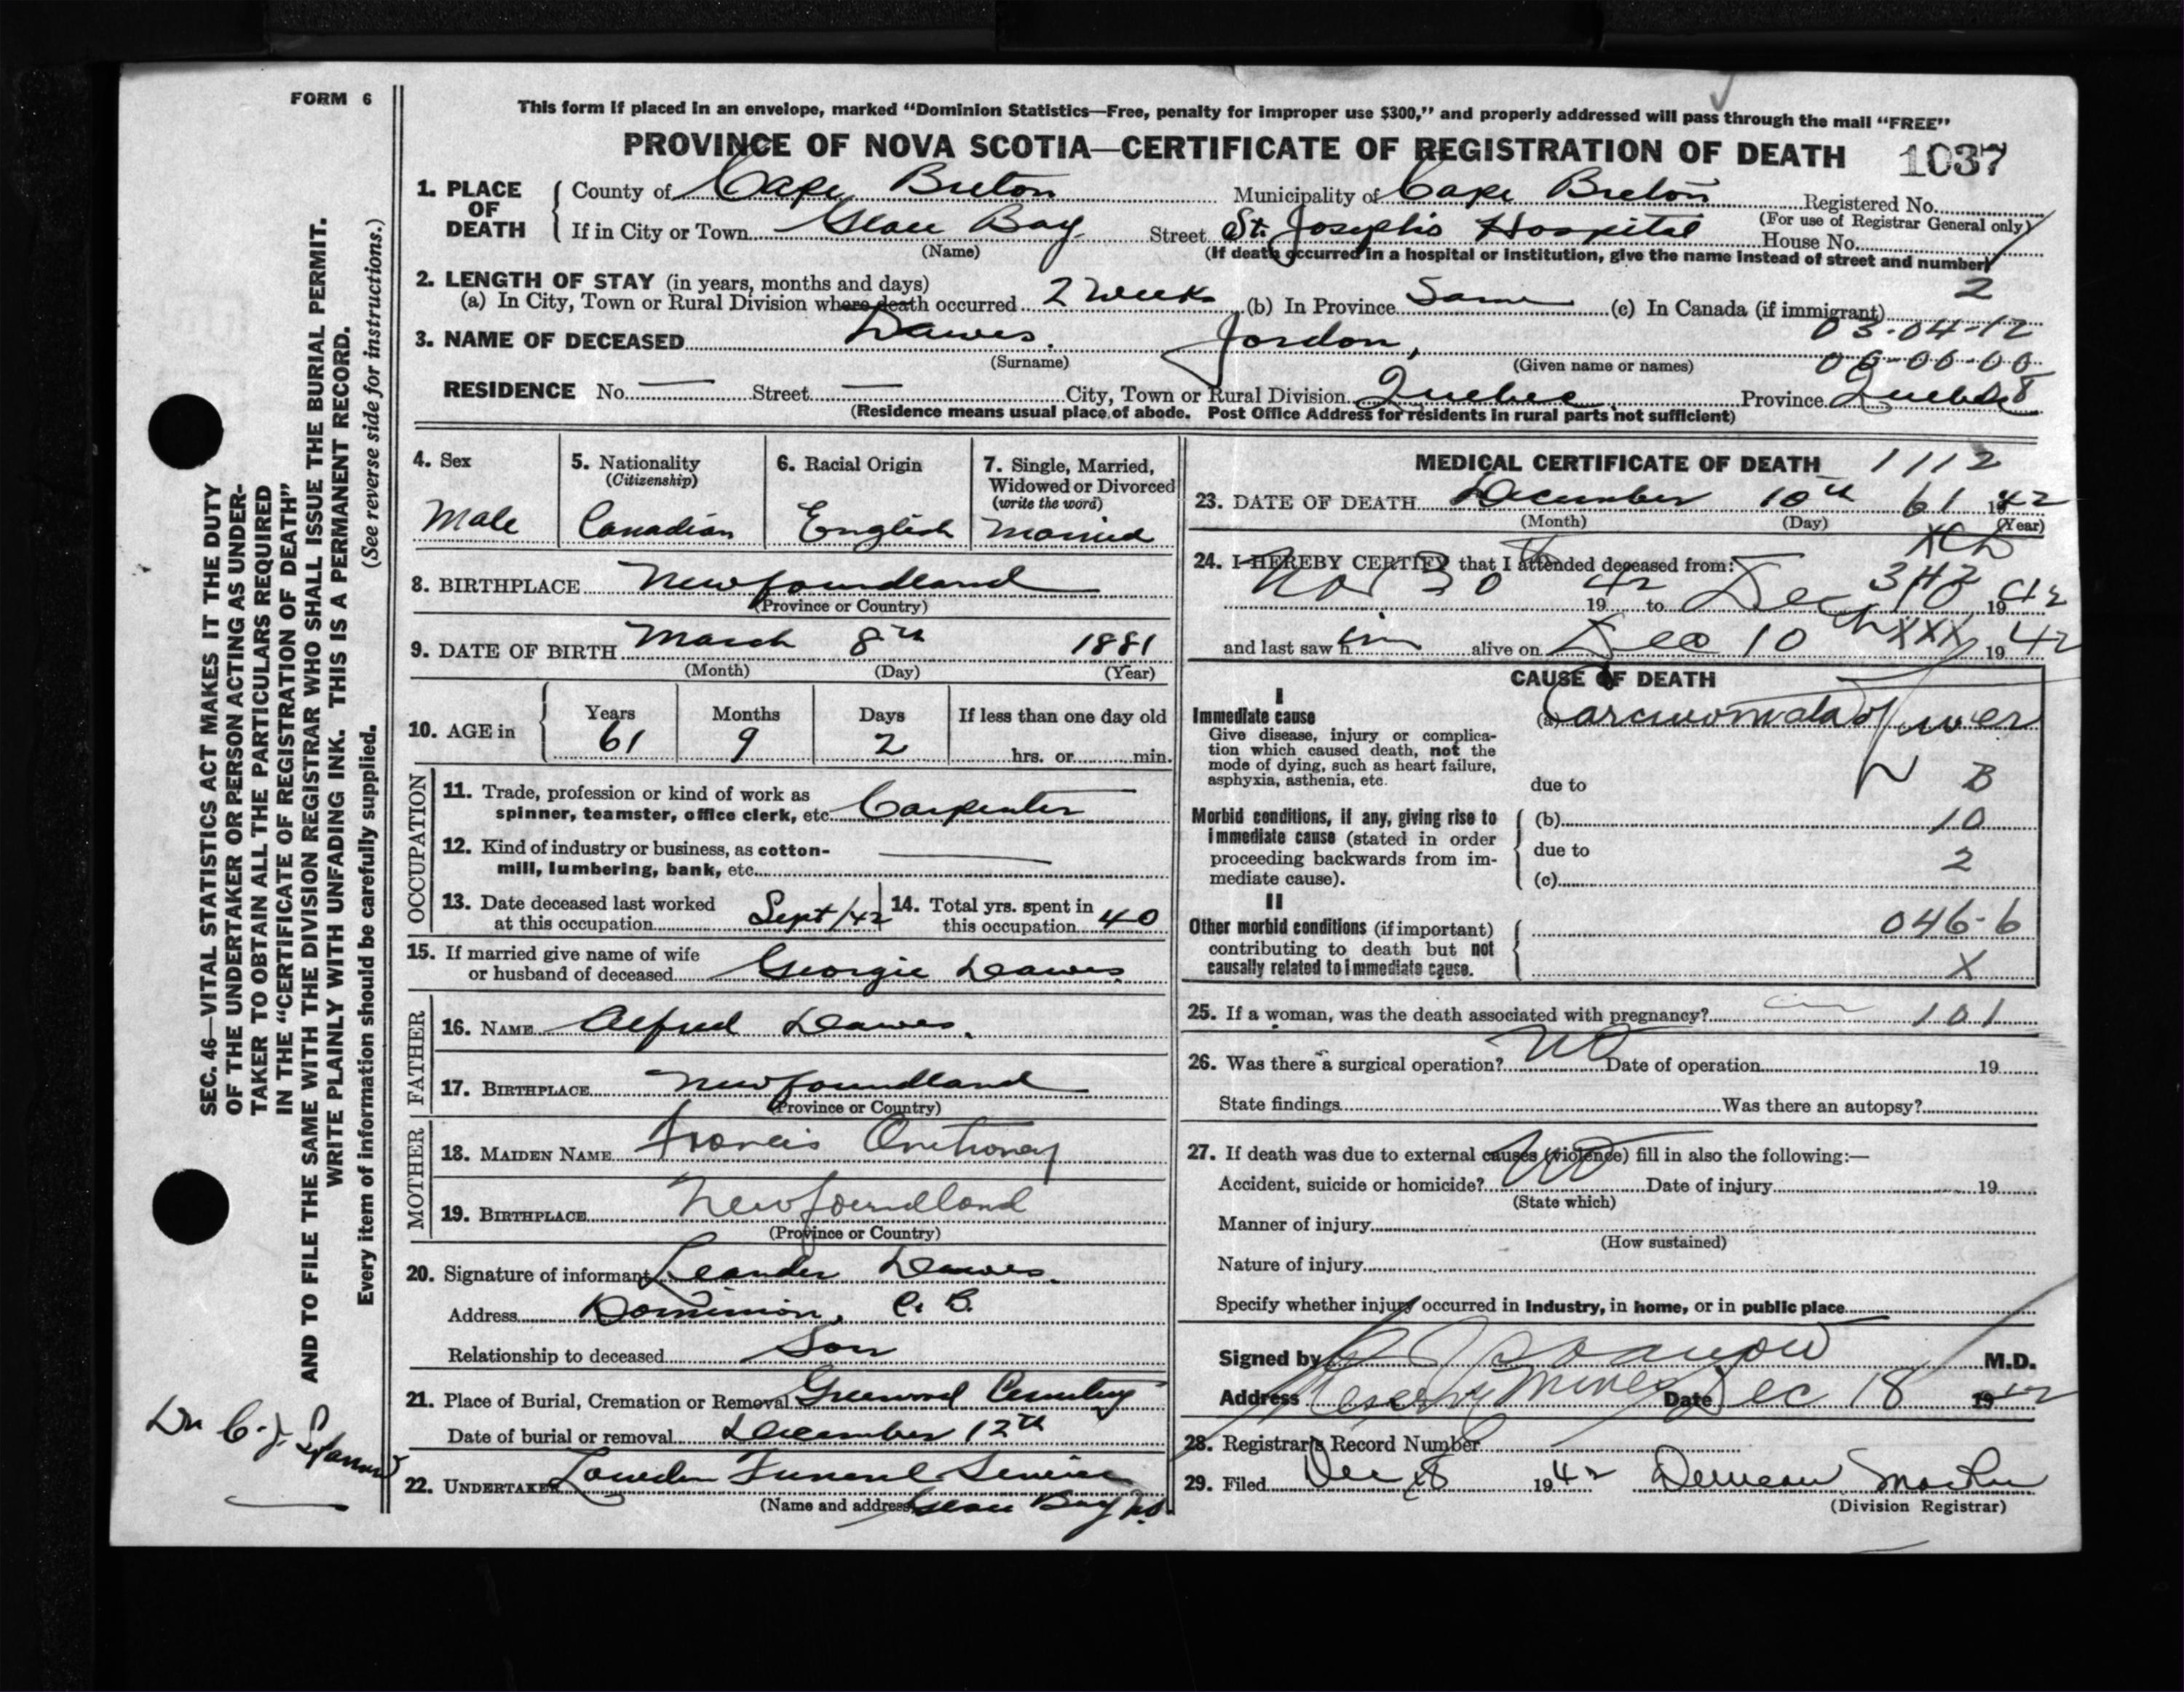 FORM 6
This form if placed in an envelope, marked "Dominion Statistics—Free, penalty for improper use $300," and properly addressed will pass through the mail "FREE"
PROVINCE OF NOVA SCOTIA—CERTIFICATE OF REGISTRATION OF DEATH 1037
SEC. 46—VITAL STATISTICS ACT MAKES IT THE DUTY
OF THE UNDERTAKER OR PERSON ACTING AS UNDER-
TAKER TO OBTAIN ALL THE PARTICULARS REQUIRED
IN THE "CERTIFICATE OF REGISTRATION OF DEATH"
AND TO FILE THE SAME WITH THE DIVISION REGISTRAR WHO SHALL ISSUE THE BURIAL PERMIT.
WRITE PLAINLY WITH UNFADING INK. THIS IS A PERMANENT RECORD.
Every item of information should be carefully supplied. (See reverse side for instructions.)
Dr C. J. Sparrow
1. PLACE OF DEATH
County of Cape Breton Municipality of Cape Breton Registered No.
(For use of Registrar General only)
If in City or Town Glace Bay Street St. Joseph's Hospital House No.
(Name) (If death occurred in a hospital or institution, give the name instead of street and number)
2. LENGTH OF STAY (in years, months and days) 2
(a) In City, Town or Rural Division where death occurred 2 Weeks (b) In Province Same (c) In Canada (if immigrant)
03-04-12
3. NAME OF DECEASED Dawes. Jordon,
(Surname) (Given name or names) 00-00-00
RESIDENCE No. — Street — City, Town or Rural Division Quebec Province Quebec
(Residence means usual place of abode. Post Office Address for residents in rural parts not sufficient)
4. Sex
Male
5. Nationality
(Citizenship)
Canadian
6. Racial Origin
English
7. Single, Married,
Widowed or Divorced
(write the word)
Married
8. BIRTHPLACE Newfoundland
(Province or Country)
9. DATE OF BIRTH March 8th 1881
(Month) (Day) (Year)
10. AGE in Years Months Days If less than one day old
61 9 2 hrs. or min.
OCCUPATION
11. Trade, profession or kind of work as
spinner, teamster, office clerk, etc. Carpenter
12. Kind of industry or business, as cotton-
mill, lumbering, bank, etc. —
13. Date deceased last worked
at this occupation Sept/42
14. Total yrs. spent in
this occupation 40
15. If married give name of wife
or husband of deceased Georgie Dawes.
FATHER
16. NAME Alfred Dawes.
17. BIRTHPLACE Newfoundland
(Province or Country)
MOTHER
18. MAIDEN NAME Francis
19. BIRTHPLACE Newfoundland
(Province or Country)
20. Signature of informant Leander Dawes.
Address Dominion, C. B.
Relationship to deceased Son
21. Place of Burial, Cremation or Removal Greenwood Cemetery
Date of burial or removal December 12th
22. UNDERTAKER Funeral Service
(Name and address) Glace Bay N.S.
MEDICAL CERTIFICATE OF DEATH 1112
23. DATE OF DEATH December 10th 61 1942
(Month) (Day) (Year)
24. I HEREBY CERTIFY that I attended deceased from:
Nov 30 1942 to Dec 10 1942
and last saw him alive on Dec 10th XXX 1942
CAUSE OF DEATH
I
Immediate cause
Give disease, injury or complica-
tion which caused death, not the
mode of dying, such as heart failure,
asphyxia, asthenia, etc.
(a) Carcinomata of liver
due to B
Morbid conditions, if any, giving rise to
immediate cause (stated in order
proceeding backwards from im-
mediate cause).
(b) 10
due to 2
(c)
II
Other morbid conditions (if important)
contributing to death but not
causally related to immediate cause.
046-6
X
25. If a woman, was the death associated with pregnancy? 101
26. Was there a surgical operation? NO Date of operation 19
State findings Was there an autopsy?
27. If death was due to external causes (violence) fill in also the following:—
Accident, suicide or homicide? NO Date of injury 19
(State which)
Manner of injury
(How sustained)
Nature of injury
Specify whether injury occurred in Industry, in home, or in public place
Signed by C J Sparrow M.D.
Address Reserve Mines Date Dec 18 1942
28. Registrar's Record Number
29. Filed Dec 18 1942
(Division Registrar)